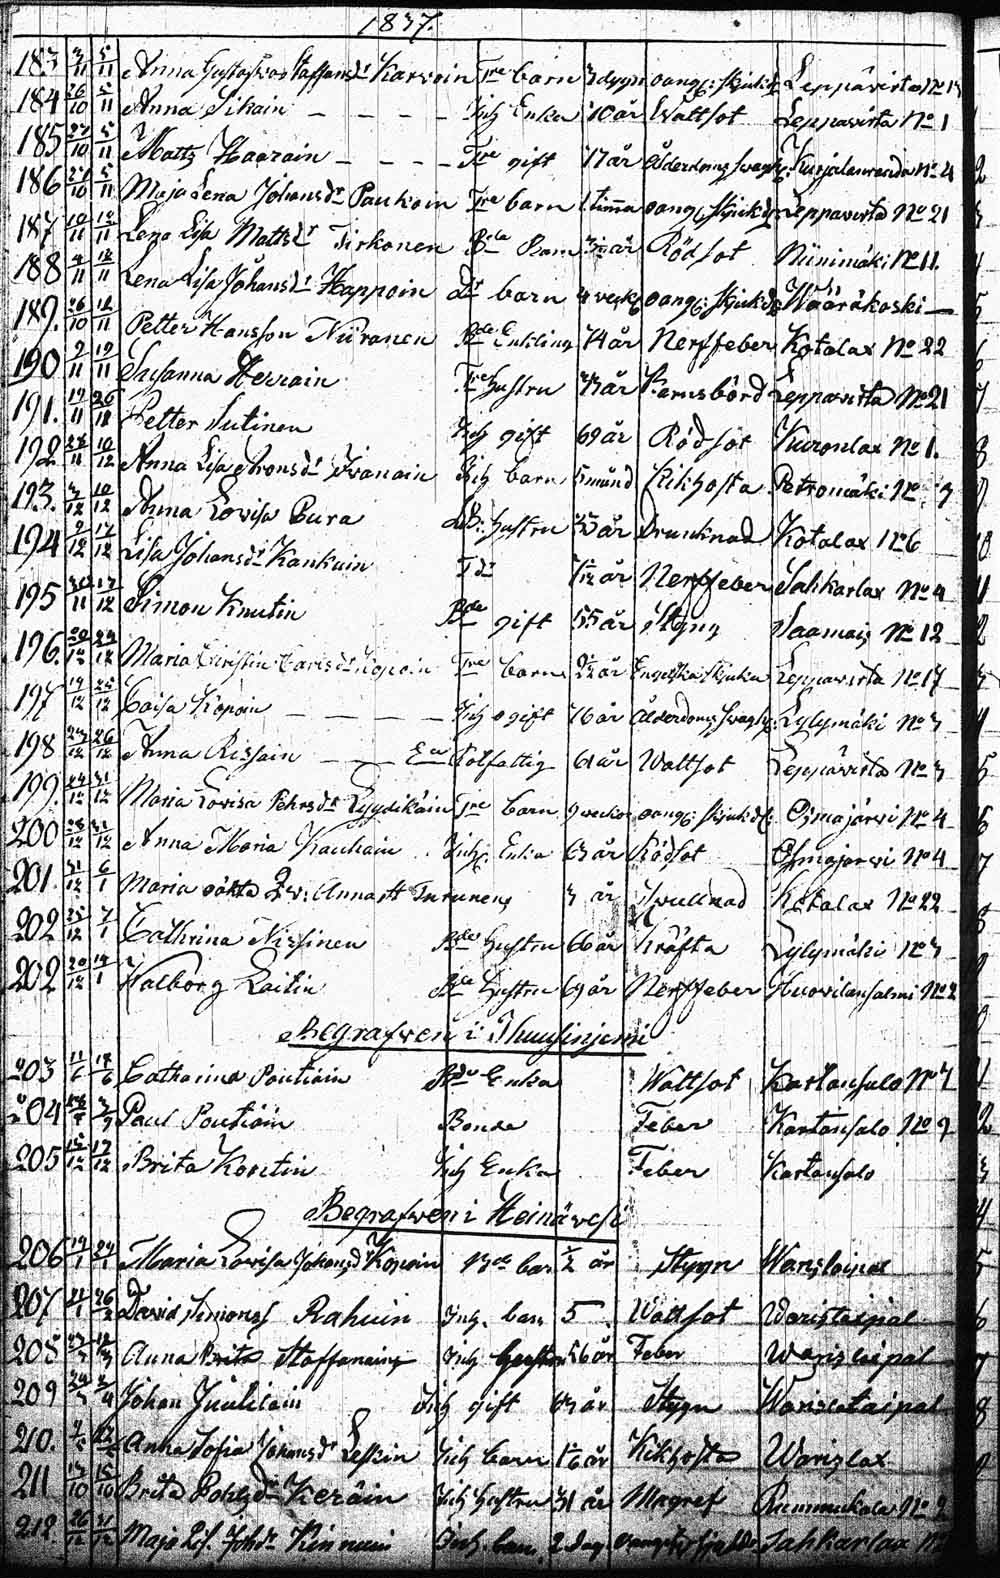 1837.
183 3/11 5/11 Anna Gustafva Staffansdr Karvoin Tre barn 3 dygn oang: sjukd. Leppävirta No 13
184 26/10 5/11 Anna Sikain – – – – Inh Enka 70 år Wattsot Leppävirta No 1
185 27/10 5/11 Matts Haarain – – – – Tre gift 77 år Ålderdoms svagh: Kurjalanranda No 4
186 27/10 5/11 Maja Lena Johansdr Paukoin Tre barn 1 timma oang: sjukd. Leppävirta No 21
187 10/11 12/11 Lena Lisa Mattsdr Tirkonen Bde Barn år Rödsot Niinimäki No 11.
188 4/11 12/11 Lena Lisa Johansdr Happoin Dr barn 4 veck: oang: sjukd. Wääräkoski –
189. 26/10 12/11 Petter Hansson Niiranen Bde Enkling 74 år Nerffeber Kotalax No 22
190 9/11 19/11 Susanna Herrain Tre hustru år Barnsbörd Leppävirta No 21
191. 19/11 26/11 Petter Sutinen Inh gift 69 år Rödsot Kuronlax No 1.
192 28/11 10/12 Anna Lisa Aronsdr Ivanain Inh barn 5 månd Kikhosta Petromäki No 7
193. 3/12 10/12 Anna Lovisa Pura hustru år Drunknad Kotalax No 6
194 9/12 17/12 Lisa Johansdr Kankain Tdr 7/12 år Nerffeber Sahkarlax No 4
195 30/11 17/12 Simon Knutin Bde gift 55 år Styng Saamais No 12
196. 20/12 24/12 Maria Christin Carlsdr Kopoin Tre barn år Engelska sjukan Leppävirta No 17
197 19/12 25/12 Caisa Kopoin – – – – Inh ogift 76 år Ålderdoms svagh: Lylymäki No 3
198 23/12 26/12 Anna Rissain – – Ea Rotfattig 61 år Wattsot Leppävirta No 3
199. 24/12 31/12 Maria Lovisa Pehrsdr Lyydikäin Tre barn 9 veckor oang: sjukd. Osmajärvi No 4
200 28/12 31/12 Anna Maria Kauhain Inh: Enka 63 år Rödsot Osmajärvi No 4
201. 31/12 6/1 Maria oäkta Anna Turunen 3 år Svullnad Kotalax No 22
202 25/12 7/1 Cathrina Nissinen Bde hustru 66 år Kräfta Lylymäki No 3
202 30/12 14/1 Walborg Laitin Bde hustru 69 år Nerffeber Huovilansalmi No 2
Begrafven i Thuusinjemi
203 11/6 18/6 Catharina Poutiain Bde Enka Wattsot Kartansalo No 7
204 Paul Poutiain Bonde Feber Kartansalo No 9
205 15/12 17/12 Brita Kontin Inh Enka Feber Kartansalo
Begrafven i Heinävesi
206 Maria Lovisa Johansdr Kopoin Bde bar ½ år Stygn Warislaipal
207 David Simonss Rahuin Inh. barn 5 Wattsot Warislaipal
208 Anna Brita Staffanainr Inh hustru 56 år Feber Warislaipal
209 Johan Juutilain Inh gift 63 år Stygn Warislataipal
210. Anna Sofia Johansdr Leskin Inh barn år Kikhosta Warislax
211 13/10 15/10 Brita Pohlsdr Keräin Inh hustru 31 år Magref Rummukala No 2
212. 26/12 31/12 Maja Lis. Johdr Kinnuin Inh. barn. 2 dag. Sahkarlax No